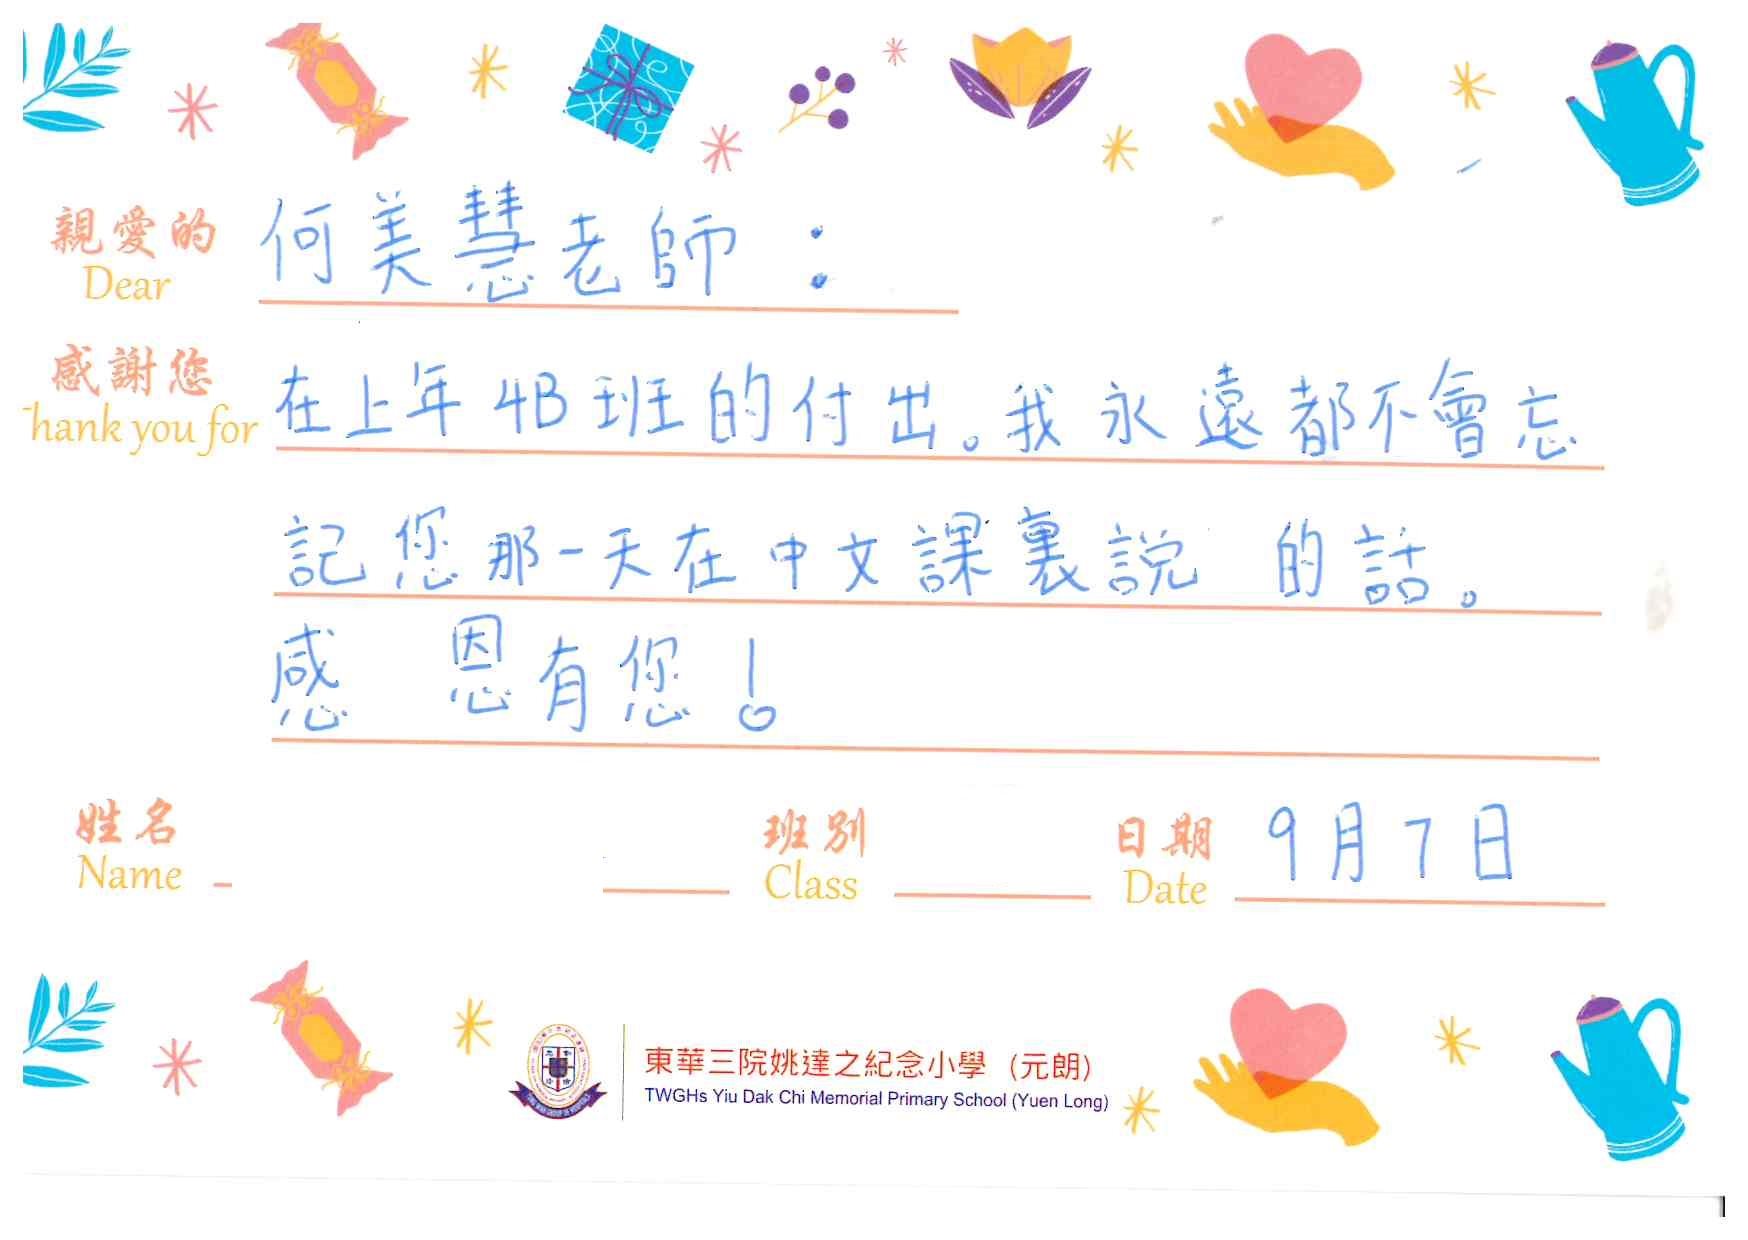 親愛的 何美慧老師：
Dear
感謝您 在上年4B班的付出。我永遠都不會忘
hank you for
記您那一天在中文課裏説的話。
感恩有您！
姓名 班別 日期 9月7日
Name Class Date
東華三院姚達之紀念小學 (元朗)
TWGHs Yiu Dak Chi Memorial Primary School (Yuen Long)